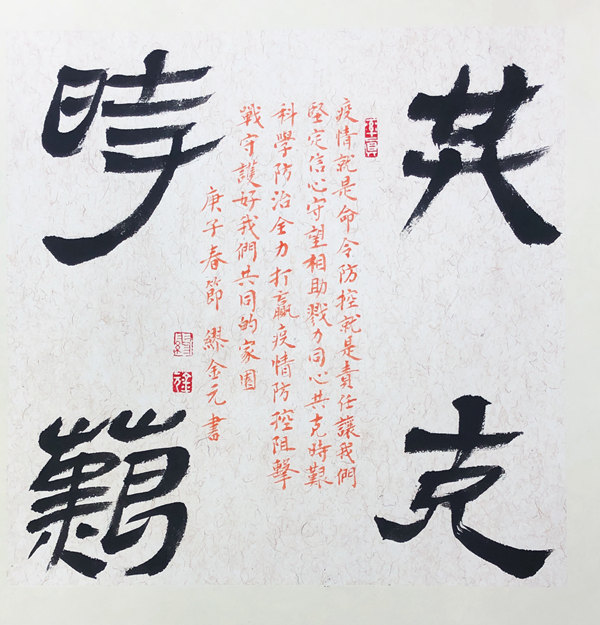 共克
時艱
疫情就是命令防控就是責任讓我們
堅定信心守望相助戮力同心共克時艱
科學防治全力打贏疫情防控阻擊
戰守護好我們共同的家園
庚子春節 繆金元書